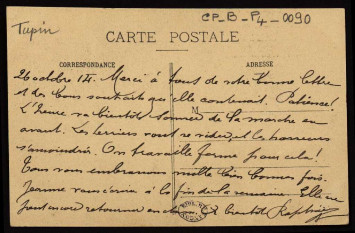 CP_B_P4_0090
Tupin
CARTE POSTALE
CORRESPONDANCE
ADRESSE
26 octobre 14. Merci à tous de votre bonne lettre
et des bons souhaits qu'elle contenait. Patience!
L'heure va bientôt sonner de la marche en
avant. Les terriers vont se vider, et les horreurs
s'amoindrir. On travaille ferme pour cela!
Tous vous embrassons mille bien bonnes fois.
Jeanne vous écrira à la fin de la semaine. Elle va
encore retourner en bientôt